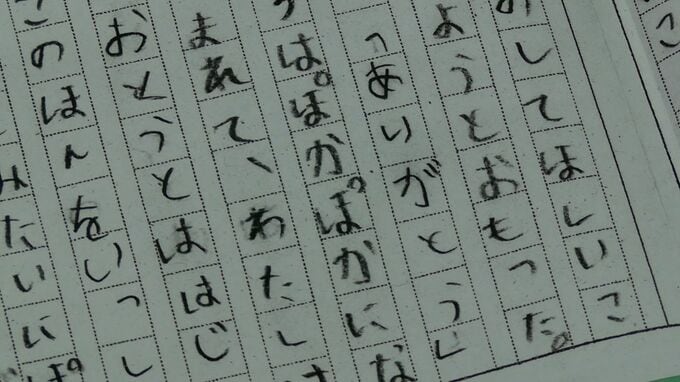 してほしいこ
ようとおもった。
「ありがとう」
はぽかぽかにな
まれて、わたし
おとうとははじ
このほんをいっし
みたいにぱ